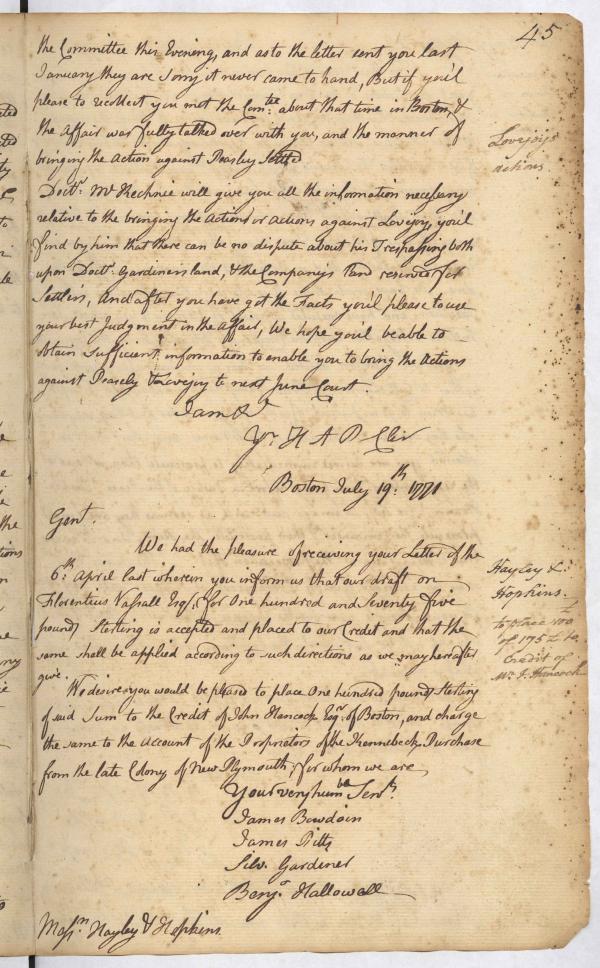 45
the Committee this Evening, and as to the letter sent you last
January they are Sorry it never came to hand, But if you'l
please to recollect you met the Comtee. about that time in Boston, &
the Affair was fully talked over with you, and the manner of
bringing the Action against Peasley Settled
Lovejoys
actions
Doctr. Mc Kechnie will give you all the information necessary
relative to the bringing the Actions or Actions against Lovejoy, you'l
find by him that there can be no dispute about his Trespassing both
upon Doctr. Gardiners land, & the Company's land reserved for
Settlers, And after you have got the Facts you'l please to use
your best Judgment in the affair, We hope you'l be able to
obtain Sufficient information to enable you to bring the Actions
against Peasely & Lovejoy to next June Court.
I am &c
Yr. H
Boston July 19.th 1771
Gent.
We had the pleasure of receiving your Letter of the
6.th April last wherein you inform us that our draft on
Florentius Vassall Esqr. for One hundred and Seventy five
pounds Sterling is accepted and placed to our Credit and that the
same shall be applied according to such directions as we may hereafter
give.
Hayley &
Hopkins.
to place 100
of 175 £ to
Credit of
Mr. J. Hancock
We desire you would be pleased to place One hundred pounds Sterling
of said Sum to the Credit of John Hancock Esqr. of Boston, and charge
the same to the Account of the Proprietors of the Kennebeck Purchase
from the late Colony of New Plymouth, for whom we are
Your very humbe Servts.
James Bowdoin
James Pitts
Silv. Gardiner
Benja. Hallowell
Messrs. Hayley & Hopkins